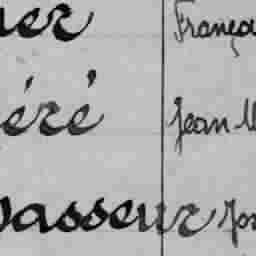 er Franço
éré Jean M
vasseur Jos